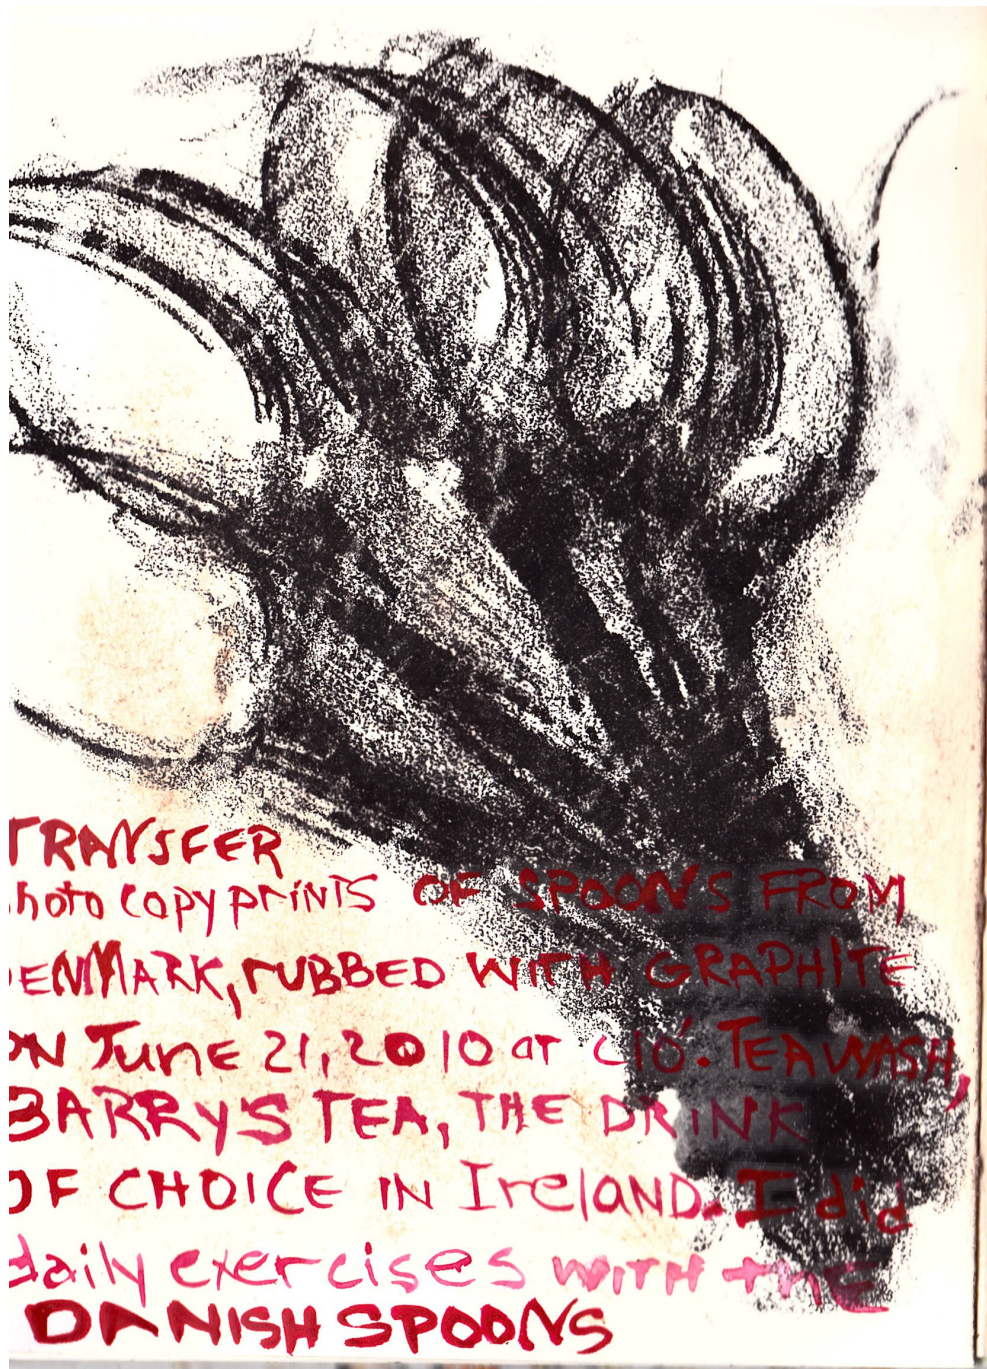 TRANSFER
hoto copy prints OF SPOONS FROM
ENMARK, rUBBED WITH GRAPHITE
ON June 21, 2010 at Clo'. TEA WASH,
BARRY'S TEA, THE DRINK
OF CHOICE IN IrelaND. I did
daily exercises with the
DANISH SPOONS